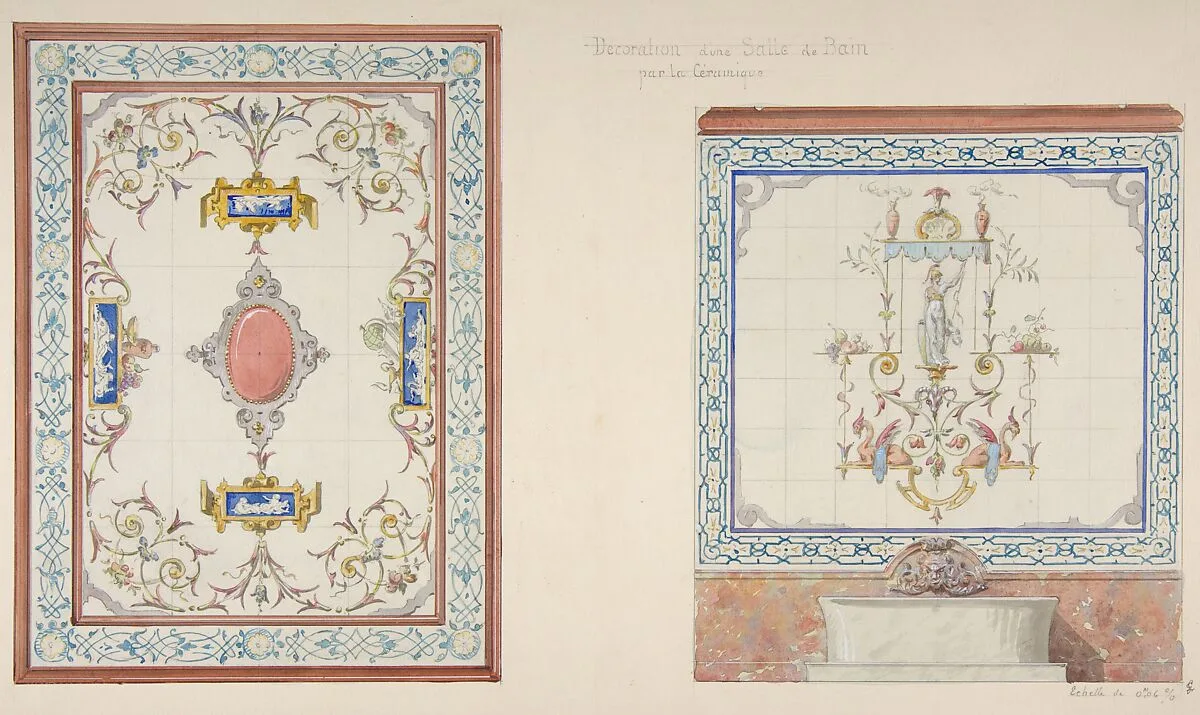 Decoration d'une Salle de Bain
par la Céramique
Echelle de 0m06 c/o